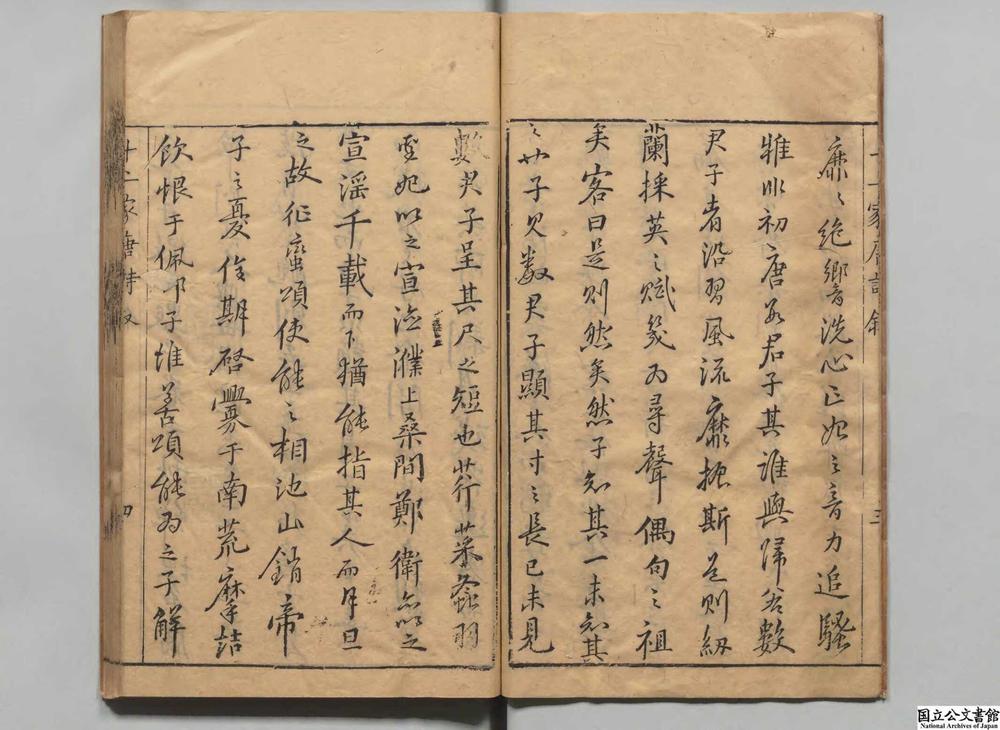 靡之絶響洗心正始之音力追騷
雅非初唐君子其誰與歸若數
君子者沿習風流靡振斯道則紉
蘭採英之賦幾為尋聲偶句之祖
矣客曰是則然矣然子知其一未知其
二也子只數君子顯其寸之長已未見
數君子呈其尺之短也荇菜螽羽
妃以之宣淫濮上桑間鄭衛以之
宣淫千載而下猶能指其人而月旦
之故征蠻頌使能之相池山銷帝
子之憂後期啓釁于南荒摩詰
飲恨于佩下子惟善頌能為之子解
十二家唐詩敘
三
十二家唐詩叙
四
国立公文書館
National Archives of Japan